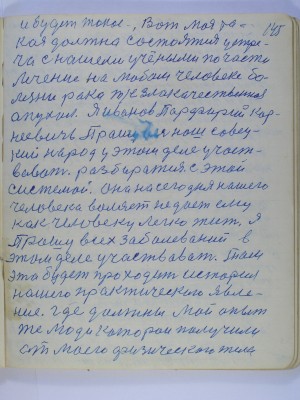 и будет такое., Вот моя та-
кая должна состоятия устре-
ча с нашими учёными по части
лечение на любом человеке бо-
лезни рака т.е злакачественноя
апухиль. Я Иванов Парфирий Кор-
неевичь Прашу и наш совец-
кий народ у этом деле участ-
вовать. разбиратия с этой
системой. она насегодня нашего
человека валяет недает ему
как человеку легко жит, я
Прашу всех заболеваний в
этом деле участвават. Там
эта будет проходит история
нашего практического явле-
ние. где должны мой опыт
те люди катораи получили
от моего физического тела